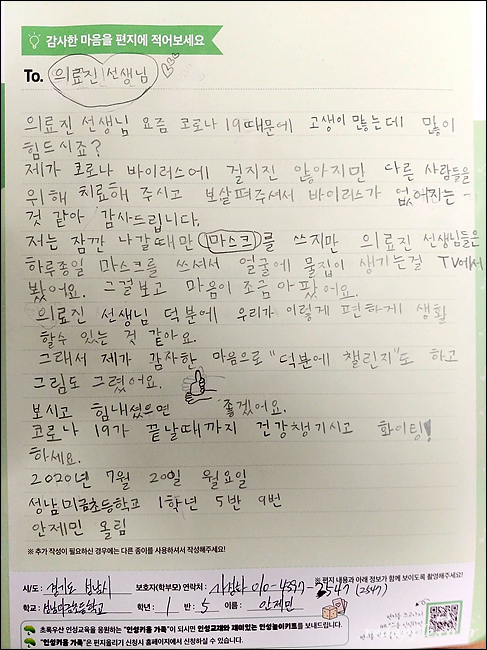 감사한 마음을 편지에 적어보세요
To. 의료진 선생님
의료진 선생님 요즘 코로나 19때문에 고생이 많은데 많이
힘드시죠?
제가 코로나 바이러스에 걸지진 않아지만 다른 사람들을
위해 치료해 주시고 보살펴주셔서 바이러스가 없어지는
것 같아 감사드립니다.
저는 잠깐 나갈때만 마스크를 쓰지만 의료진 선생님들은
하루종일 마스크를 쓰셔서 얼굴에 물집이 생기는걸 TV에서
봤어요. 그걸보고 마음이 조금 아팠어요.
의료진 선생님 덕분에 우리가 이렇게 편하게 생활
할수 있는 것 같아요.
그래서 제가 감사한 마음으로 "덕분에 챌린지"도 하고
그림도 그렸어요.
보시고 힘내셨으면 좋겠어요.
코로나 19가 끝날때까지 건강챙기시고 화이팅!
하세요.
2020년 7월 20일 월요일
성남미금초등학교 1학년 5반 9번
안제민 올림
※ 추가 작성이 필요하신 경우에는 다른 종이를 사용하셔서 작성해주세요!
※ 편지 내용과 아래 정보가 함께 보이도록 촬영해주세요!
시/도: 경기도 성남시 보호자(학부모) 연락처: 010-4597-2547 (2547)
학교: 성남미금초등학교 학년: 1 반: 5 이름: 안제민
초록우산 인성교육을 응원하는 "인성키움 가족"이 되시면 인성교재와 재미있는 인성놀이키트를 보내드립니다.
"인성키움 가족"은 편지쓰기 신청시 홈페이지에서 신청하실 수 있습니다.